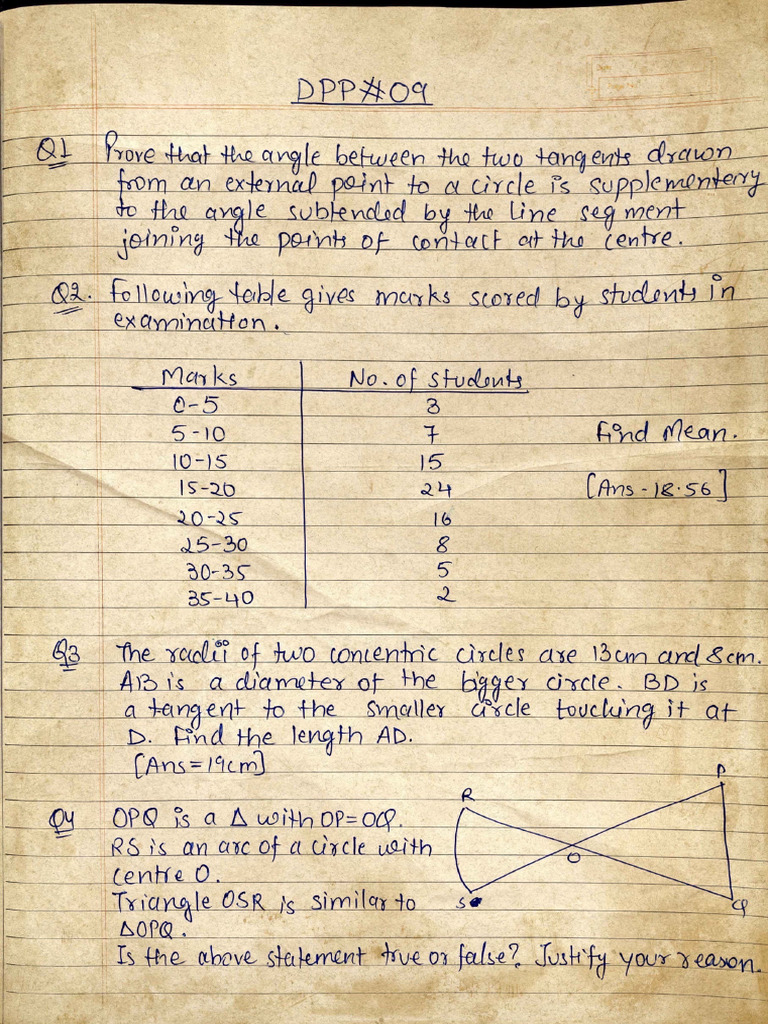 DPP#09
Q1 Prove that the angle between the two tangents drawn
from an external point to a circle is supplementery
to the angle subtended by the line segment
joining the points of contact at the centre.
Q2. Following table gives marks scored by students in
examination.
Marks No. of students
0-5 3
5-10 7 Find Mean.
10-15 15
15-20 24 [Ans - 18.56]
20-25 16
25-30 8
30-35 5
35-40 2
Q3 The radii of two concentric circles are 13cm and 8cm.
AB is a diameter of the bigger circle. BD is
a tangent to the smaller circle touching it at
D. Find the length AD.
[Ans = 19cm]
Q4 OPQ is a Δ with OP=OQ.
RS is an arc of a circle with
centre O.
Triangle OSR is similar to
ΔOPQ.
Is the above statement true or false? Justify your reason.
R
P
O
S
Q